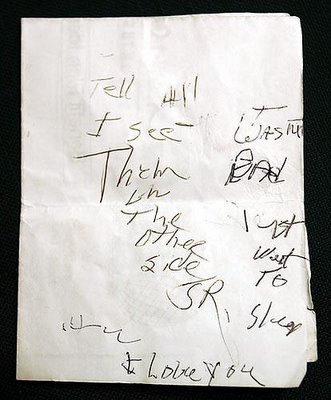 Tell All
I see
Them
on
The
other
side
JR.
BAD
Just
went
TO
sleep
I Love You